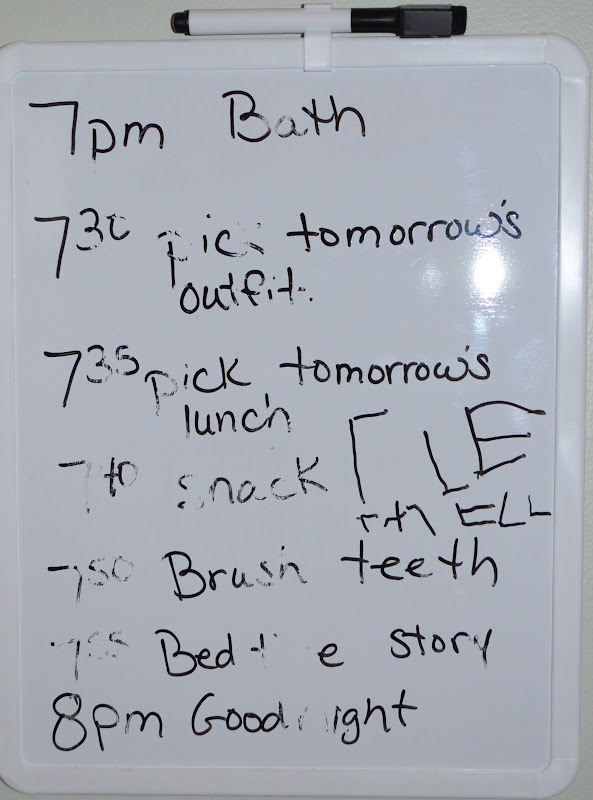 7pm Bath
730 pick tomorrow's
outfit.
735 pick tomorrow's
lunch
740 snack
750 Brush teeth
755 Bedtime story
8pm Goodnight